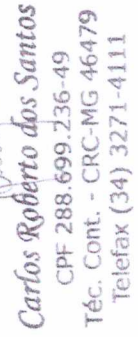 Carlos Roberto dos Santos
CPF 288.699.236-49
Téc. Cont. - CRC-MG 46479
Telefax (34) 3271-4111